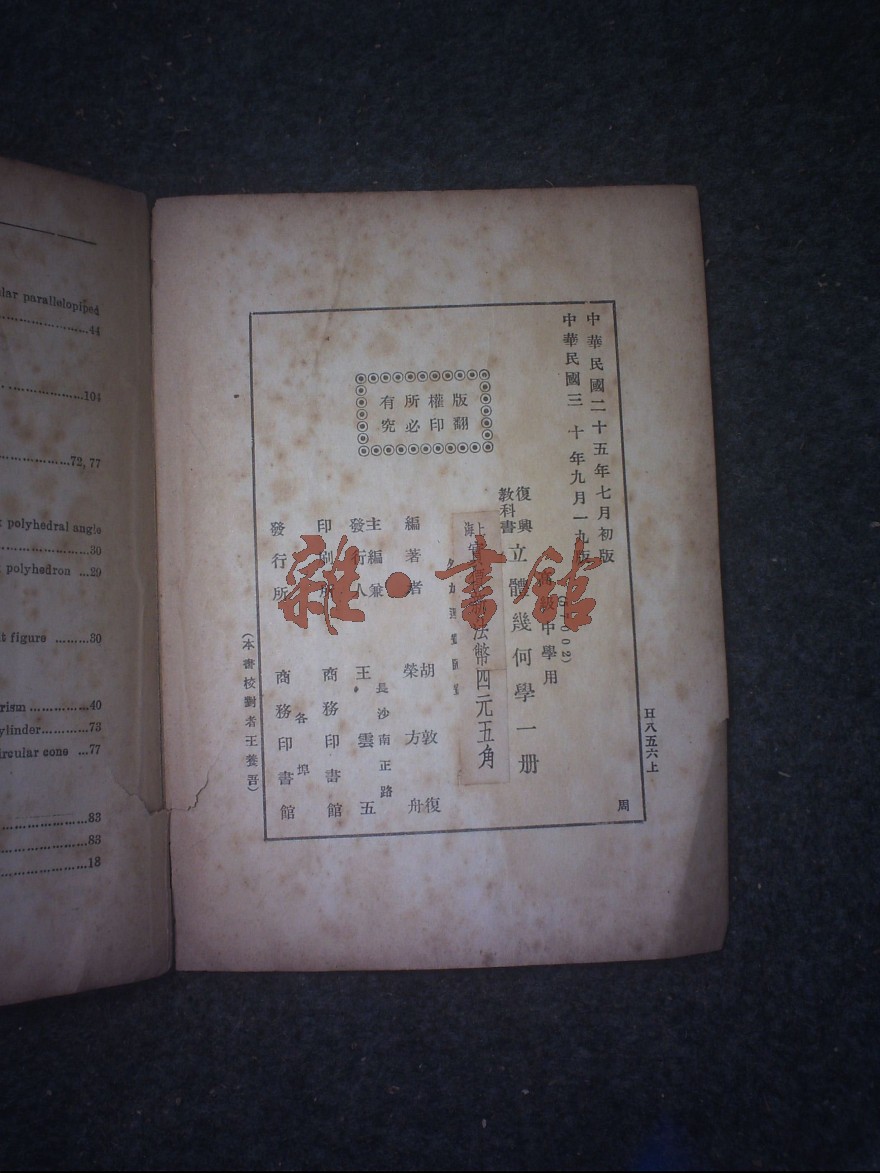 中華民國二十五年七月初版
中華民國三十年九月一九版
版權所有
翻印必究
(67002)
級中學用
復興
教科書
立體幾何學一册
上海
法幣四元五角
編著者
胡敦復
榮方舟
主編兼
發行人
王雲五
長沙南正路
印刷所
商務印書館
各埠
發行所
商務印書館
(本書校對者王養吾)
H八五六上
周
雜·書館
lar parallelopiped
44
104
72, 77
polyhedral angle
30
polyhedron ...29
t figure .........80
rism ...............40
ylinder............73
ircular cone ...77
83
88
18